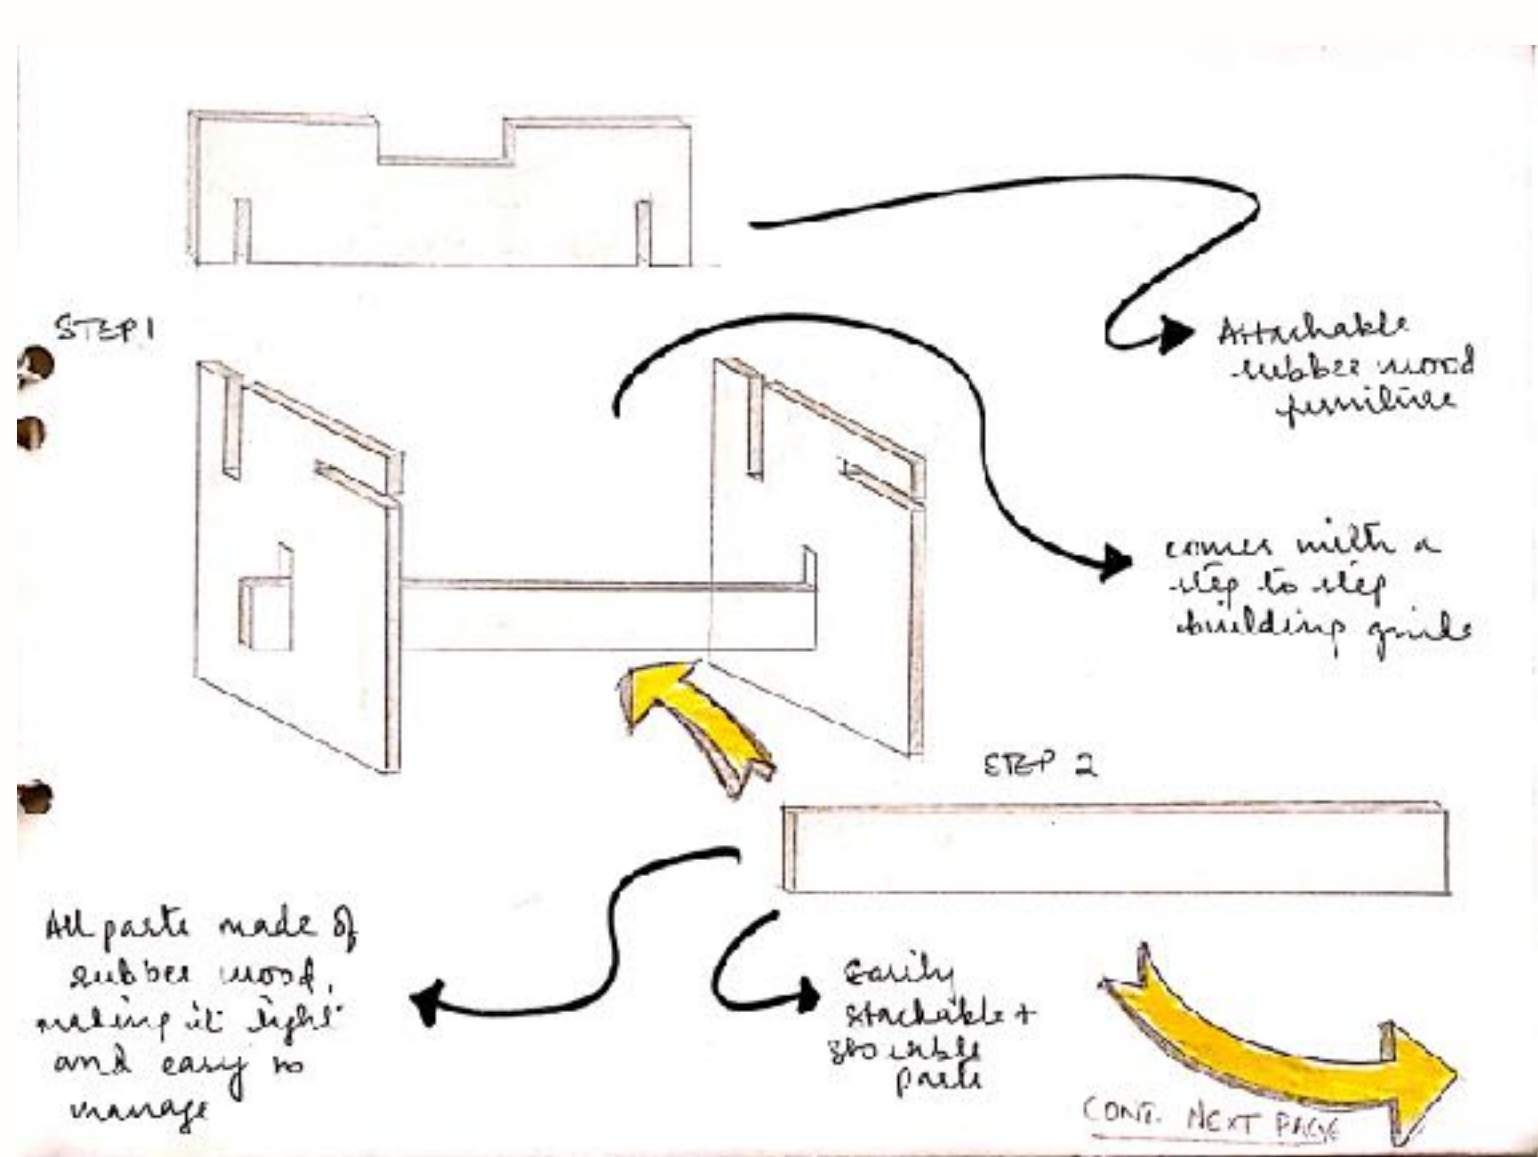 STEP 1
Attachable
rubber wood
furniture
comes with a
step to step
building guide
STEP 2
All parts made of
rubber wood,
making it light
and easy to
manage
Easily
stackable +
parts
CONT. NEXT PAGE